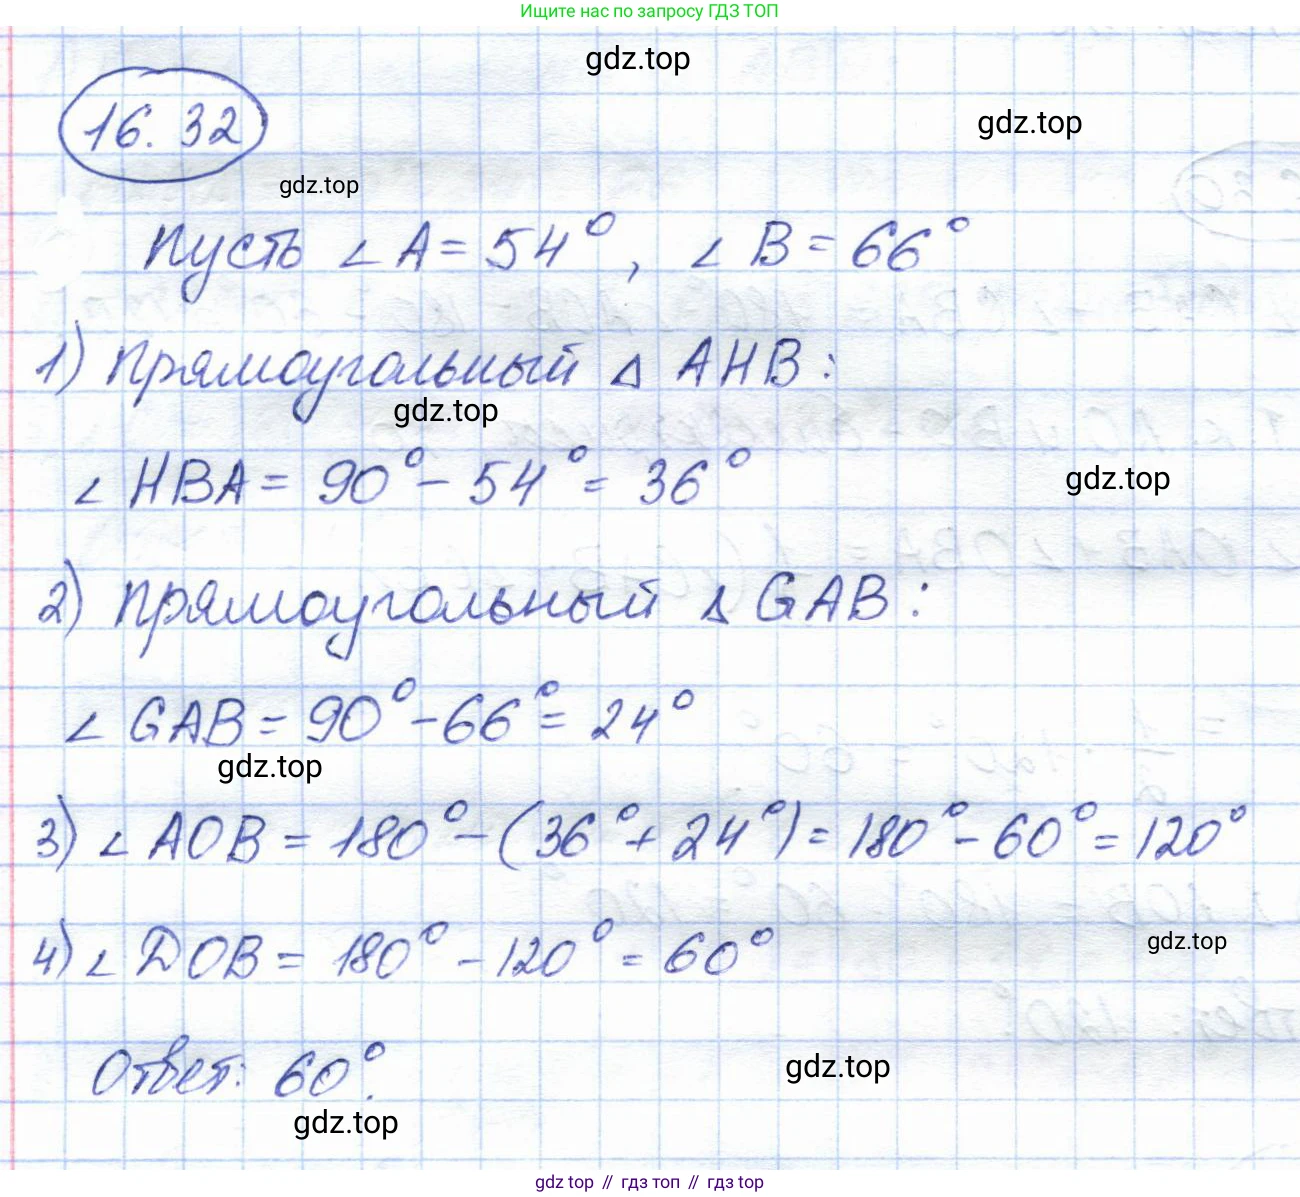 Ищите нас по запросу ГДЗ ТОП
gdz.top
16.32
gdz.top
gdz.top
Пусть ∠A = 54°, ∠B = 66°
1) Прямоугольный △ AHB:
gdz.top
∠HBA = 90° - 54° = 36°
gdz.top
2) Прямоугольный △ GAB:
∠GAB = 90° - 66° = 24°
gdz.top
3) ∠AOB = 180° - (36° + 24°) = 180° - 60° = 120°
4) ∠DOB = 180° - 120° = 60°
gdz.top
Ответ: 60°.
gdz.top
gdz.top
gdz top // гдз топ // gdz top